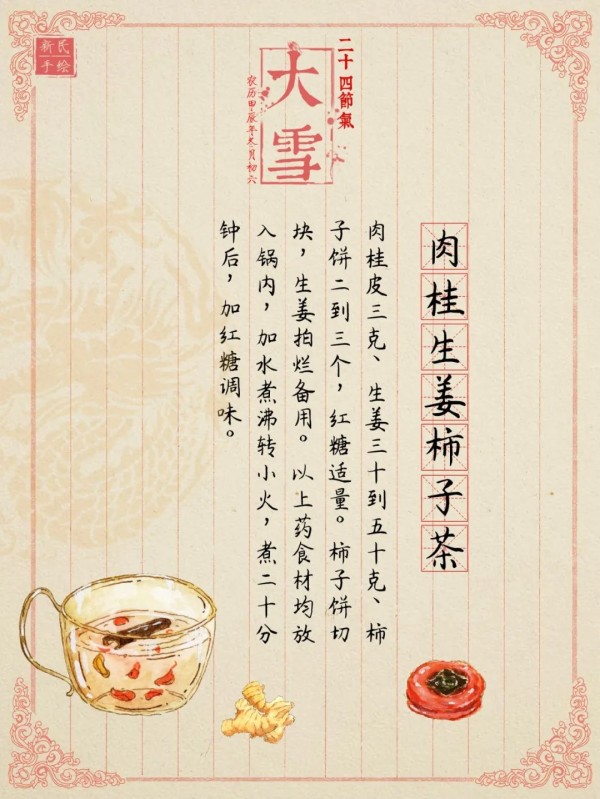 新民
手绘
二十四節氣
大雪
农历甲辰年冬月初六
肉桂生姜柿子茶
肉桂皮三克、生姜三十到五十克、柿
子饼二到三个，红糖适量。柿子饼切
块，生姜拍烂备用。以上药食材均放
入锅内，加水煮沸转小火，煮二十分
钟后，加红糖调味。